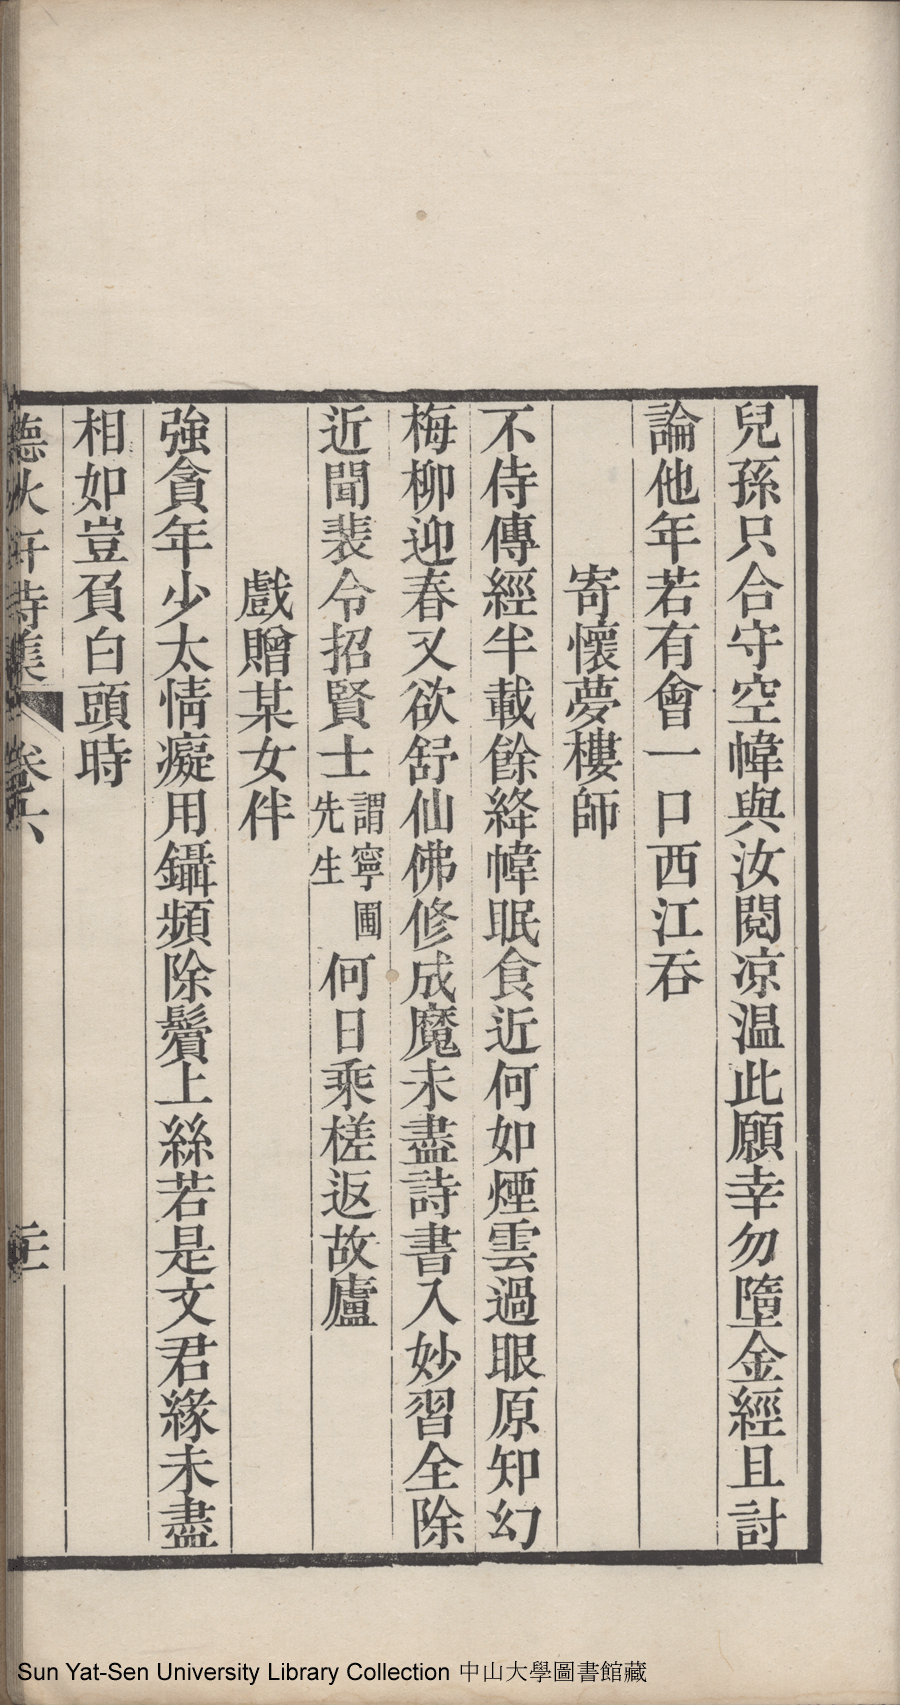 兒孫只合守空幃與汝閱凉温此願幸勿墮金經且討
論他年若有會一口西江吞
寄懷夢樓師
不侍傳經半載餘絳幃眠食近何如煙雲過眼原知幻
梅柳迎春又欲舒仙佛修成魔未盡詩書入妙習全除
近聞裴令招賢士謂寧圃先生何日乘槎返故廬
戲贈某女伴
強貪年少太情癡用鑷頻除鬢上絲若是文君緣未盡
相如豈負白頭時
聽秋軒詩集 卷六
Sun Yat-Sen University Library Collection 中山大學圖書館藏